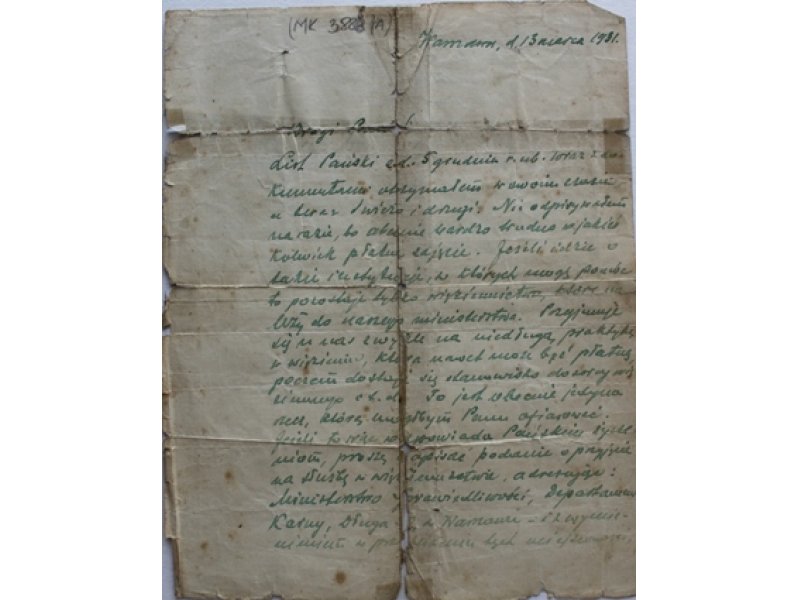 (MK 3883/A)
Warszawa, d. 13 marca 1931.
Drogi Panie!
List Pański z d. 5 grudnia r. ub. wraz z do-
kumentami otrzymałem w swoim czasie,
a teraz świeżo i drugi. Nie odpisywałem
na razie, bo obecnie bardzo trudno o jakieś
kolwiek płatne zajęcie. Jeśli idzie o
takie instytucje, w których mogę pomóc
to pozostaje tylko więziennictwo, które na
leży do naszego ministerstwa. Przyjmuje
się u nas zwykle na niedługą praktykę
w więzieniu, która nawet może być płatną,
poczem dostaje się stanowisko dozorcy wię
ziennego i t. d. To jest obecnie jedyna
rzecz, którą mógłbym Panu ofiarować.
Jeśli to odpowiada Pańskim życze
niom, proszę napisać podanie o przyjęcie
na służbę w więziennictwie, adresując:
Ministerstwo Sprawiedliwości, Departament
Karny, Długa w Warszawie